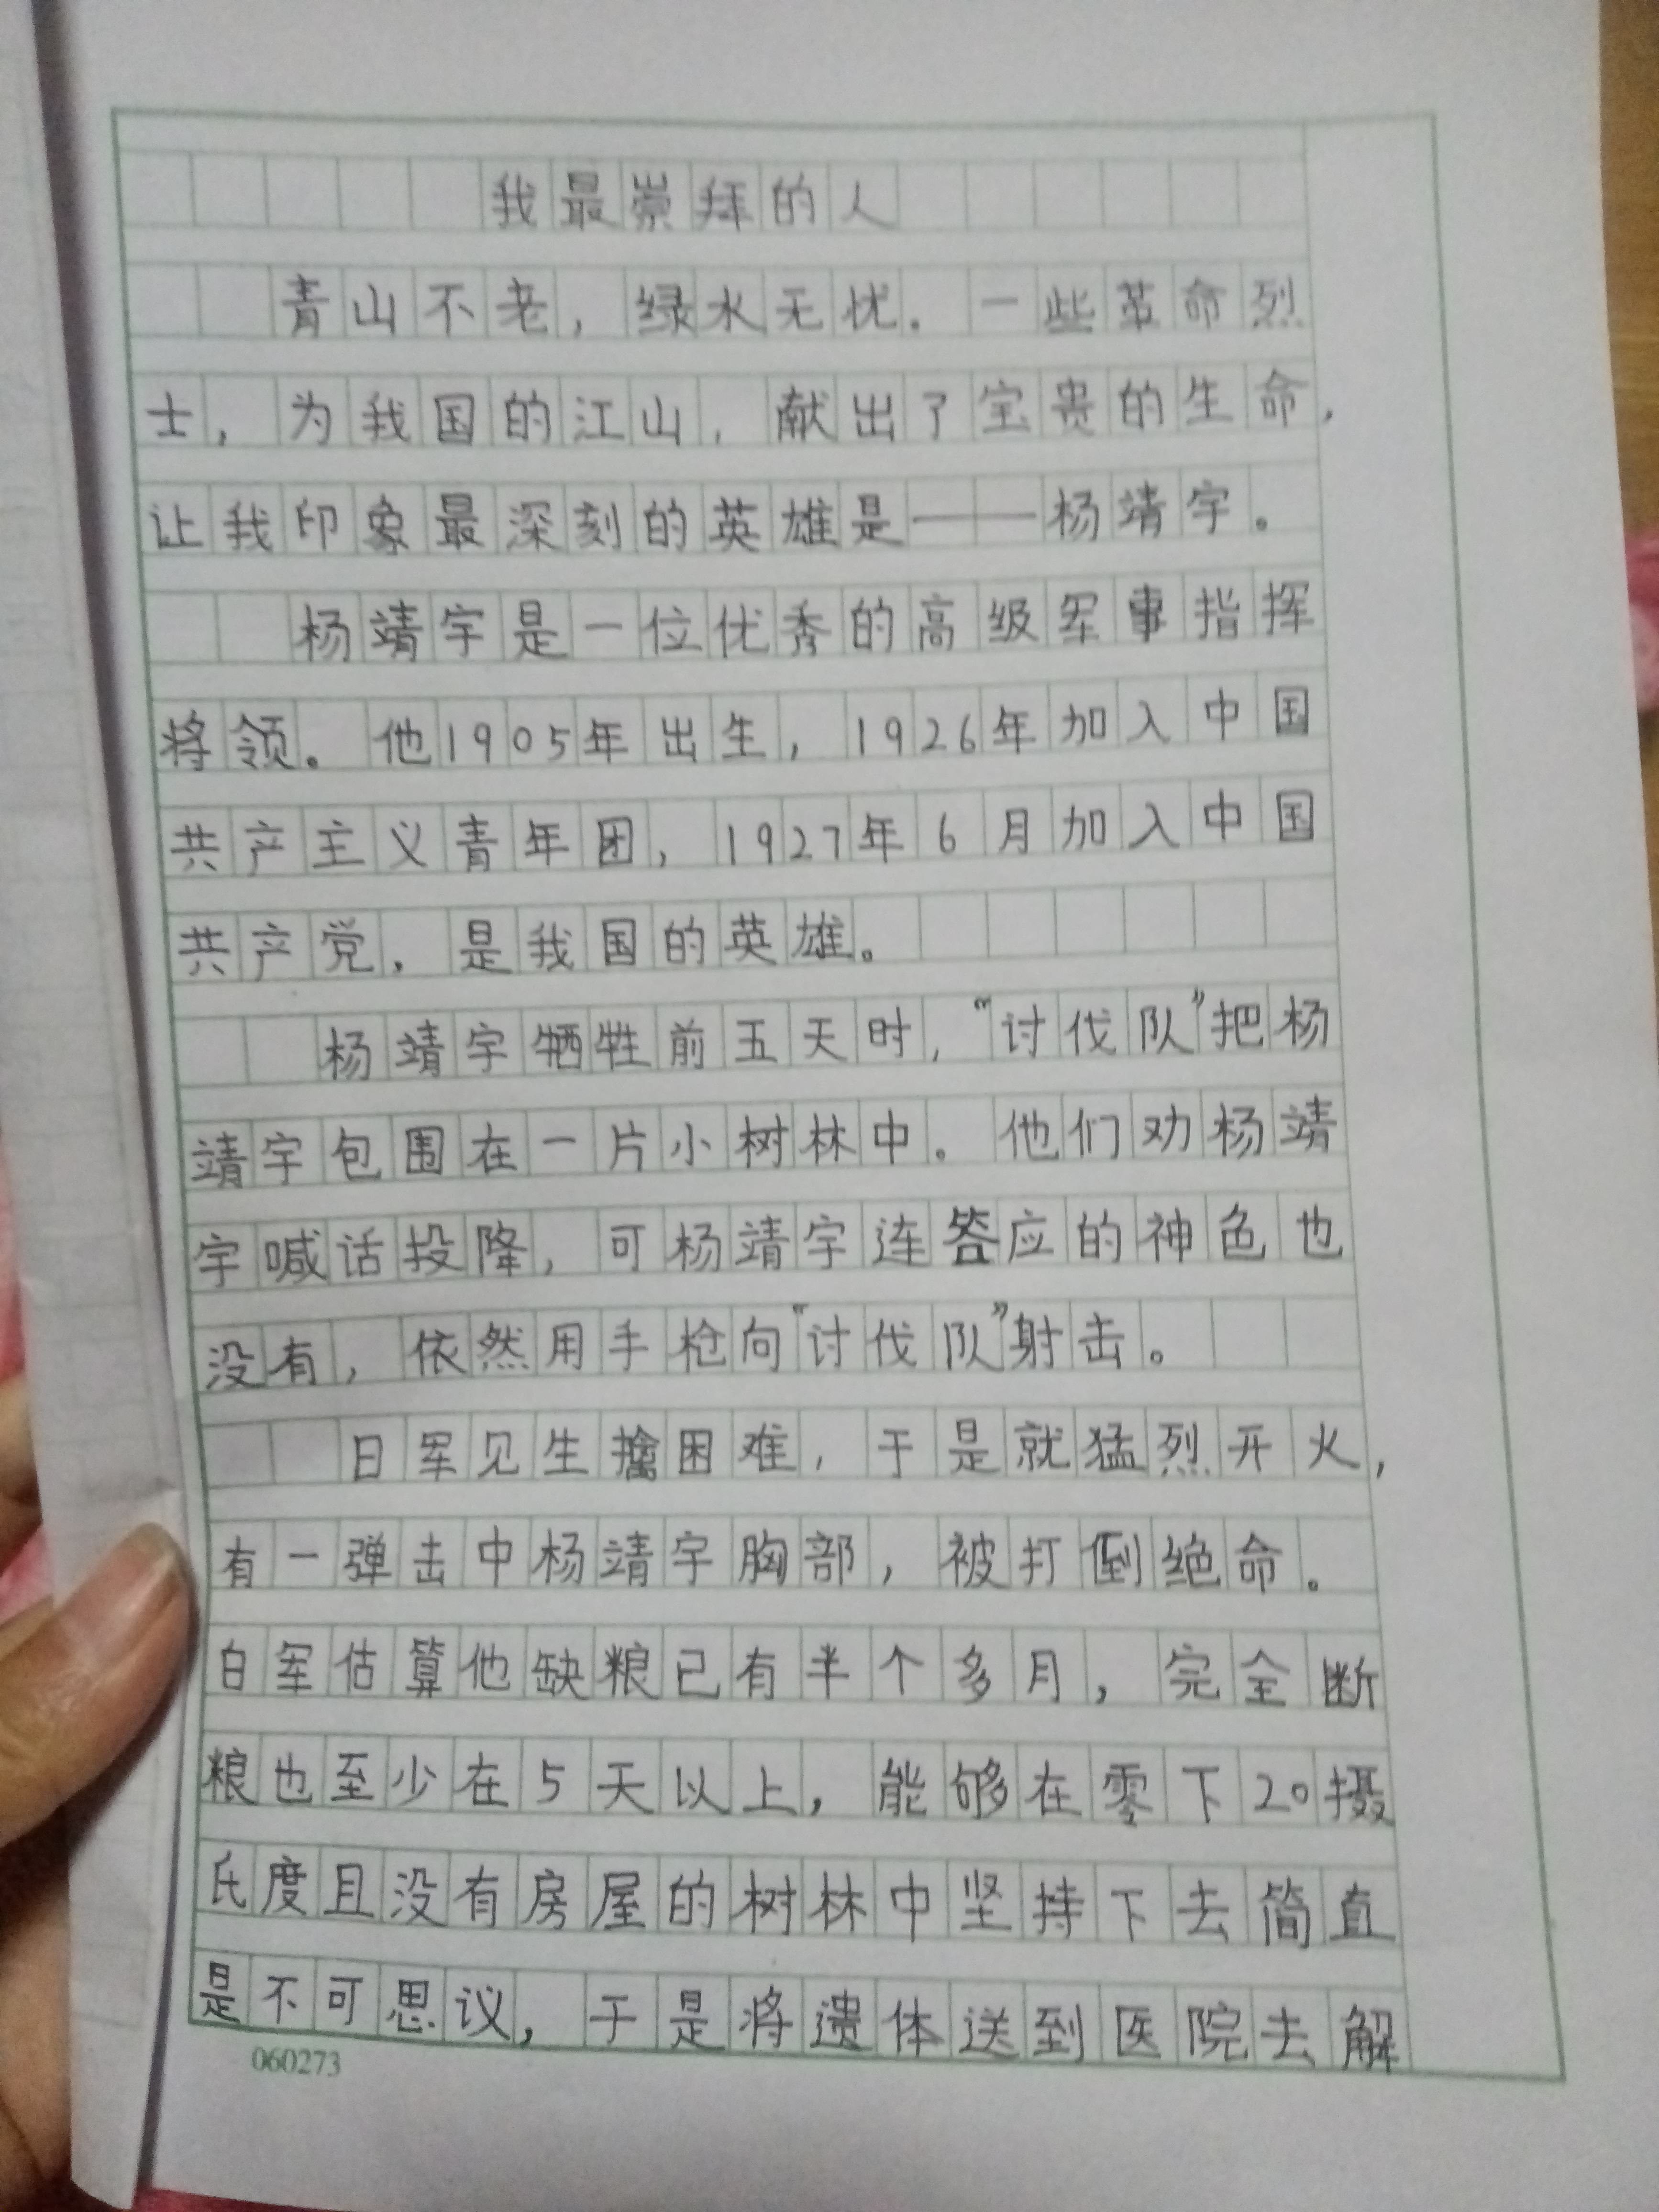 我最崇拜的人
青山不老，绿水无忧。一些革命烈
士，为我国的江山，献出了宝贵的生命，
让我印象最深刻的英雄是——杨靖宇。
杨靖宇是一位优秀的高级军事指挥
将领。他1905年出生，1926年加入中国
共产主义青年团，1927年6月加入中国
共产党，是我国的英雄。
杨靖宇牺牲前五天时，“讨伐队”把杨
靖宇包围在一片小树林中。他们劝杨靖
宇喊话投降，可杨靖宇连答应的神色也
没有，依然用手枪向“讨伐队”射击。
日军见生擒困难，于是就猛烈开火，
有一弹击中杨靖宇胸部，被打倒绝命。
白军估算他缺粮已有半个多月，完全断
粮也至少在5天以上，能够在零下20摄
氏度且没有房屋的树林中坚持下去简直
是不可思议，于是将遗体送到医院去解
060273